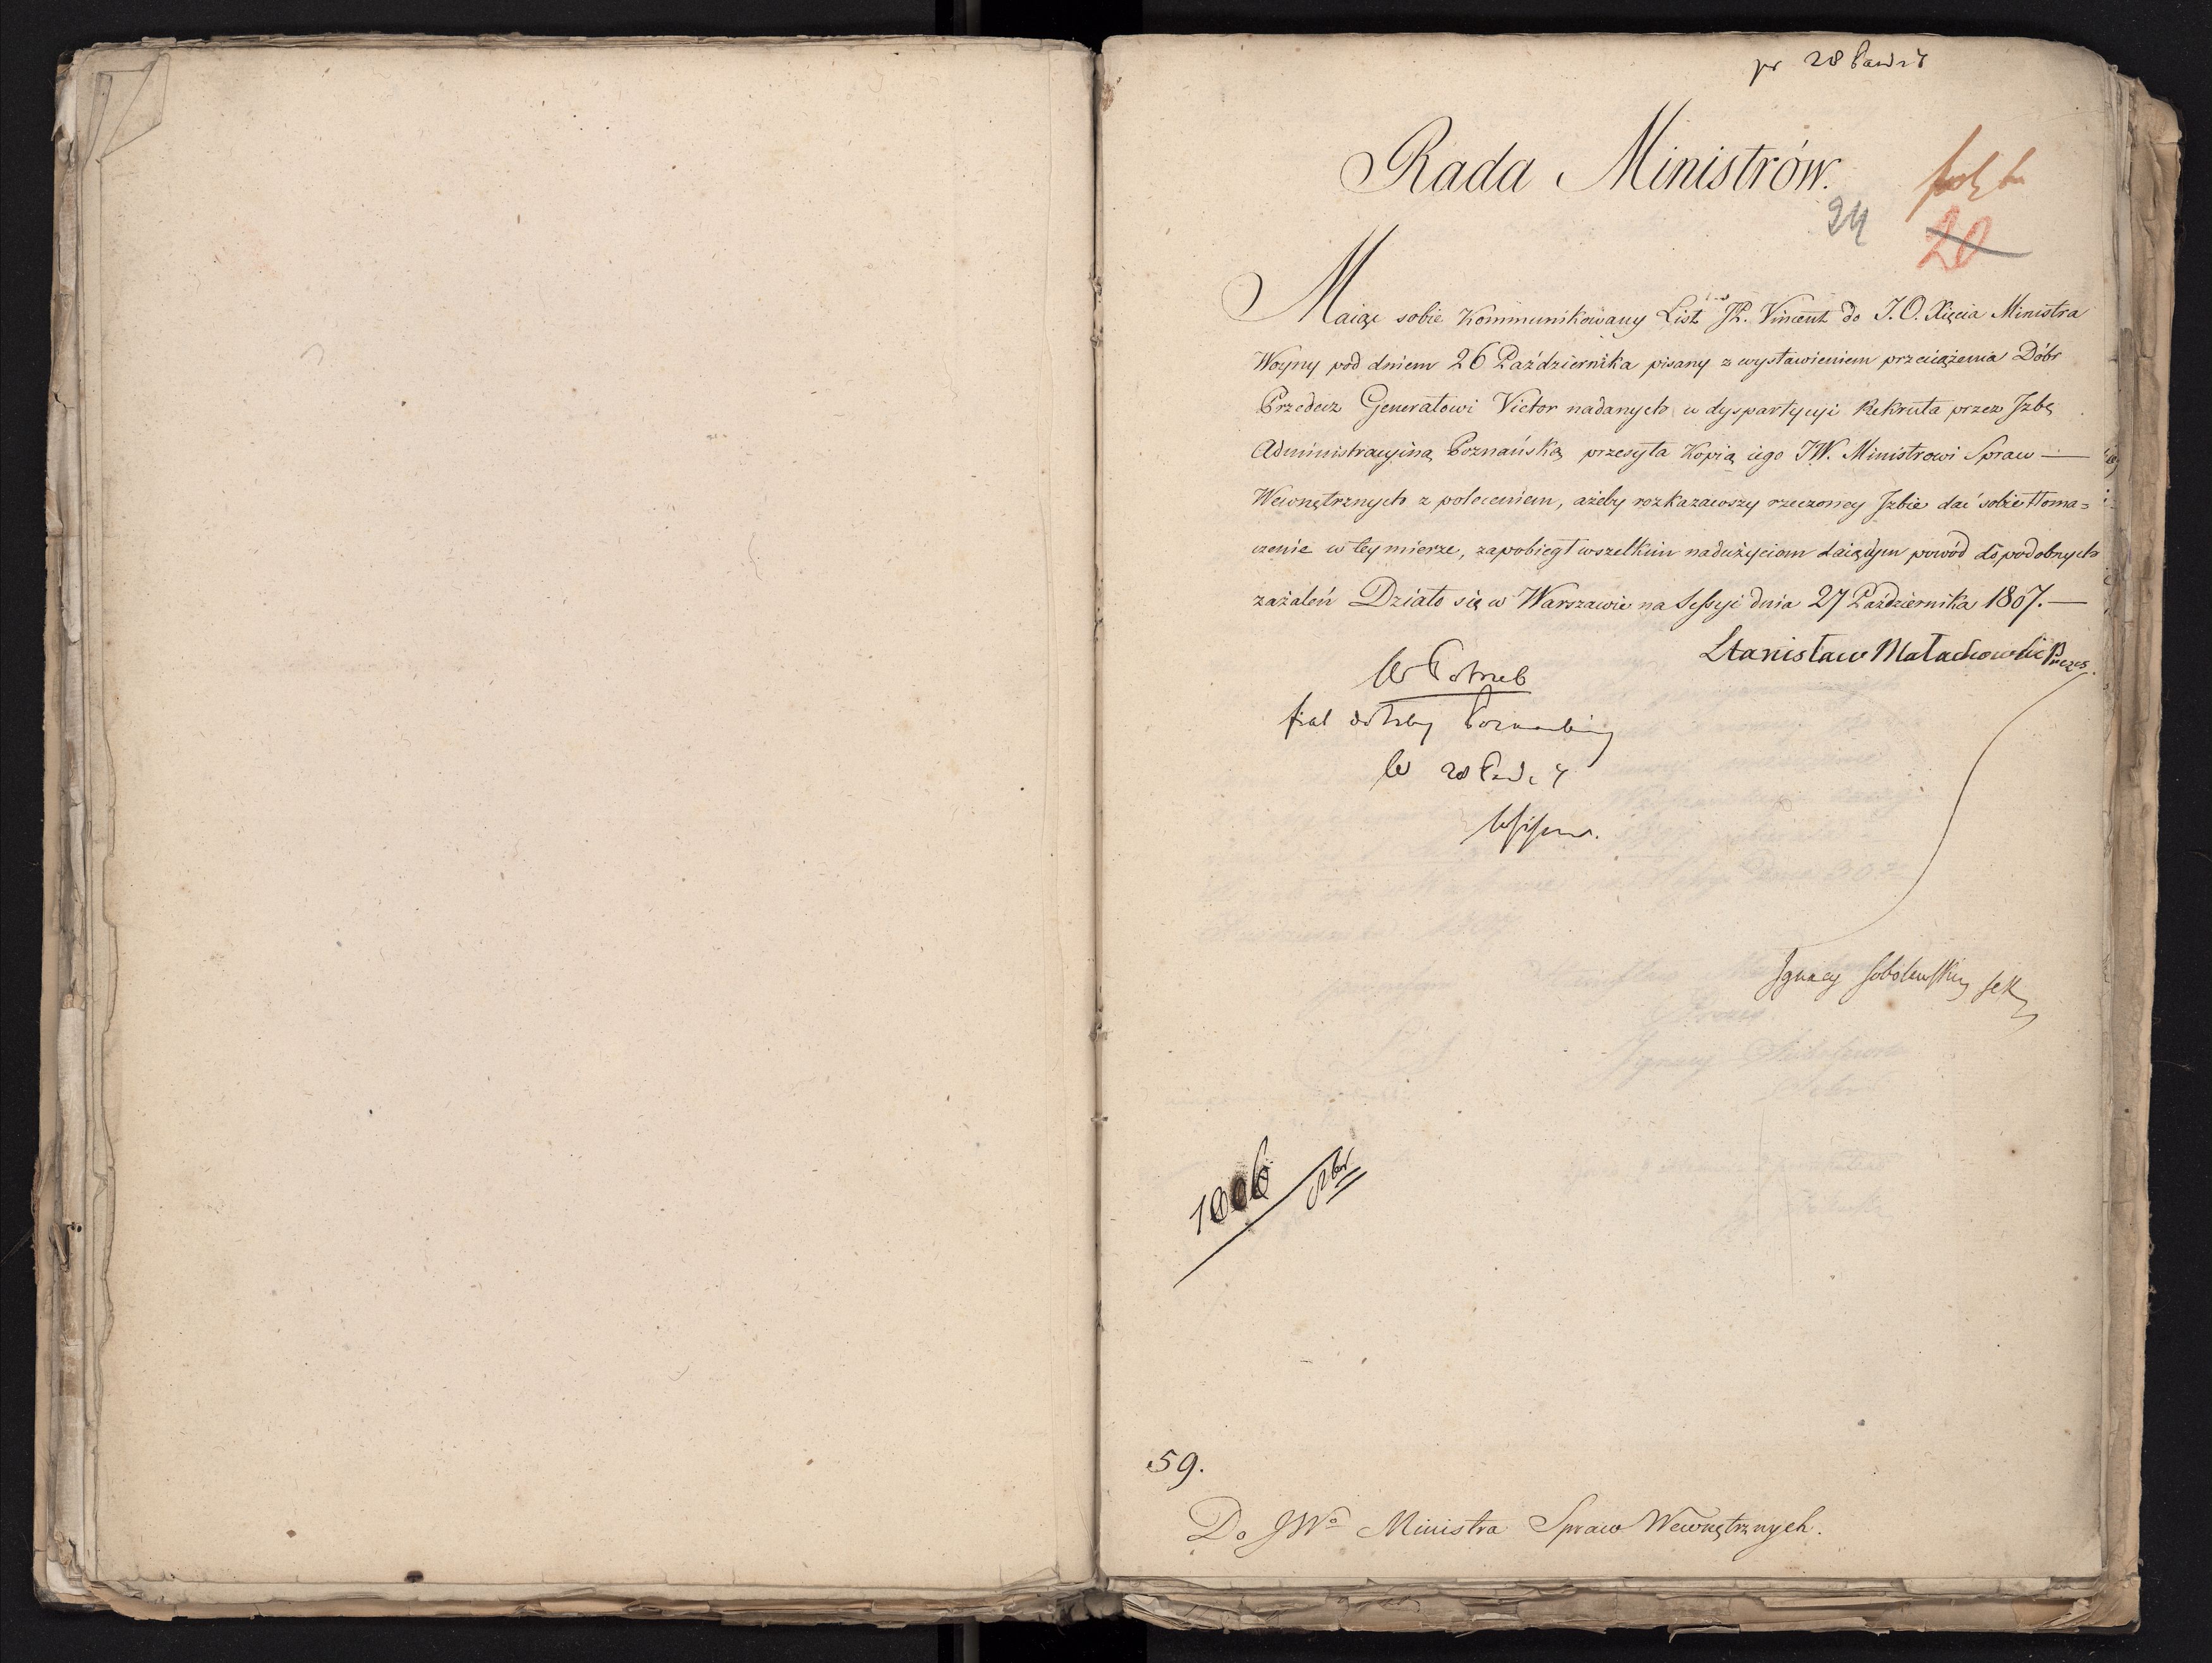 pr 28 Paźdz
Rada Ministrów.
24
20
Maiąc sobie Kommunikowany List JP. Vincent do J.O. Xięcia Ministra
Woyny pod dniem 26 Października pisany z wystawieniem przeciążenia Dóbr
Przedecz Generałowi Victor nadanych w dyspartycyi Rekruta przez Jzbę
Administracyiną Poznańską przesyła Kopią iego JW. Ministrowi Spraw —
Wewnętrznych z poleceniem, ażeby rozkazawszy rzeczoney Jzbie dać sobie tłoma=
czenie w tey mierze, zapobiegł wszelkim nadużyciom daiącym powód do podobnych
zażaleń Działo się w Warszawie na Sessyi dnia 27 Października 1807. —
Stanisław Małachowski Prezes.
do Izby
28
Ignacy Sobolewski Sek
59.
Do JWo Ministra Spraw Wewnętrznych.